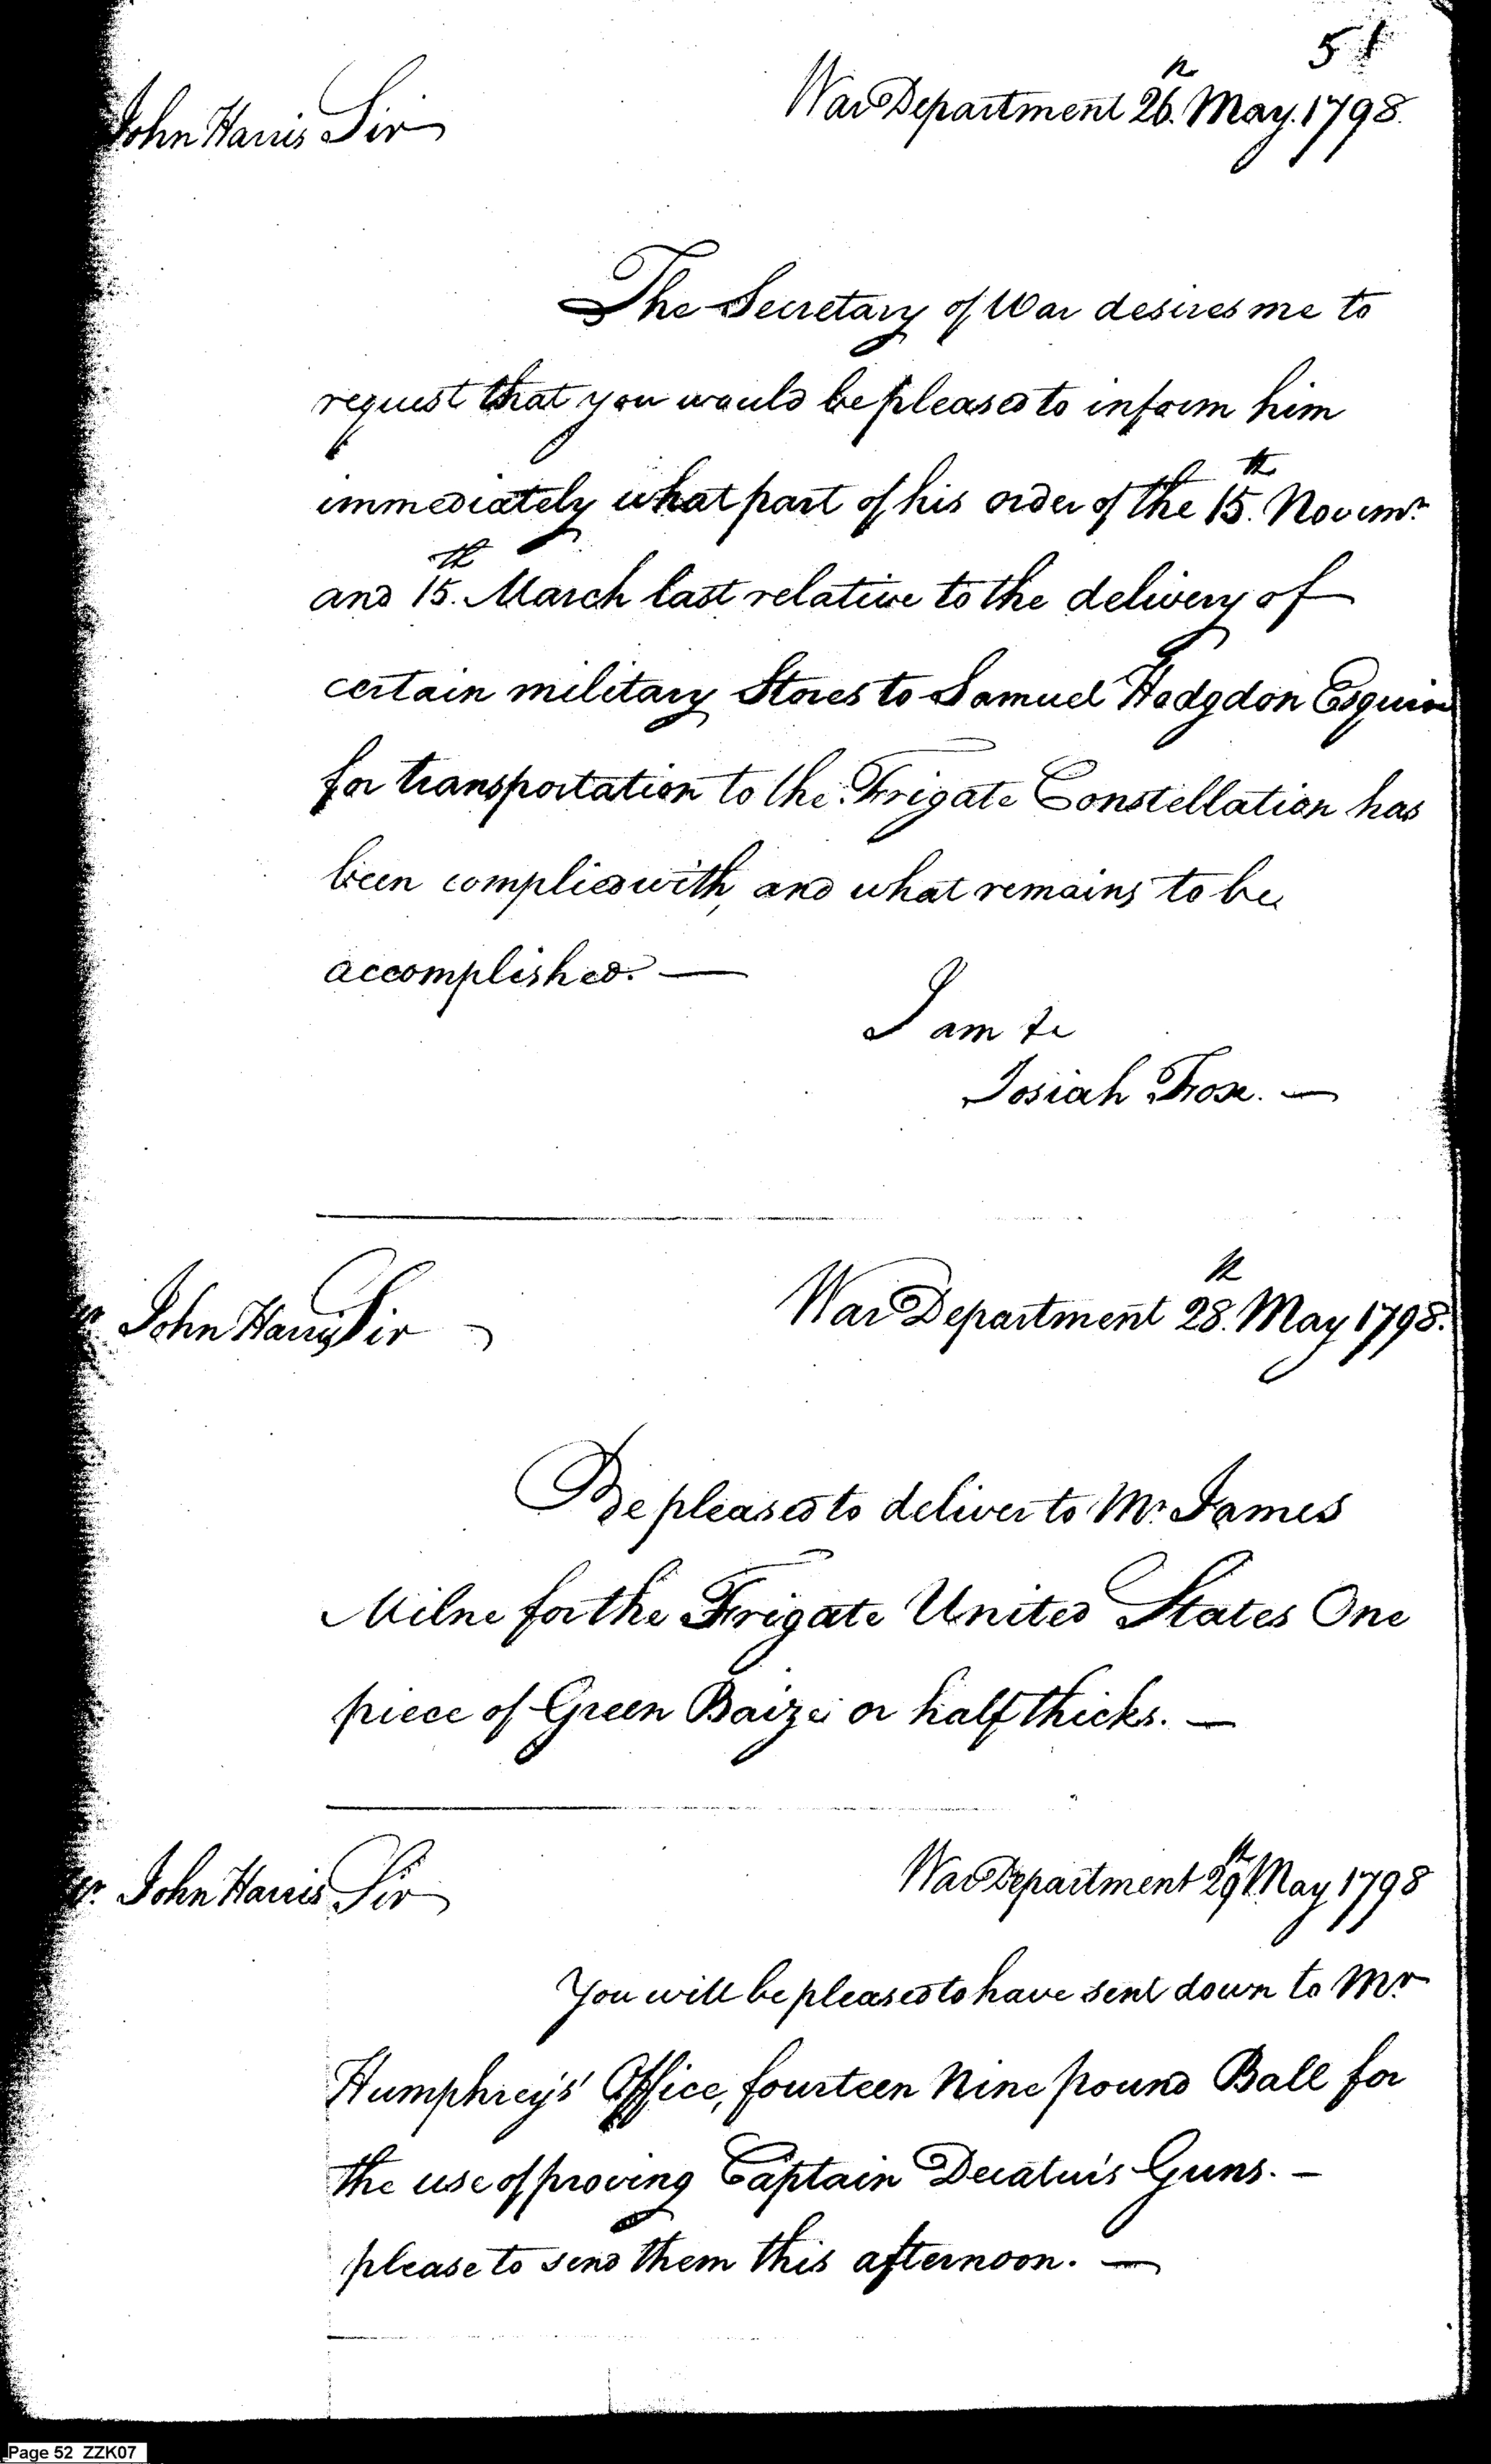 51
War Department 26.th May. 1798.
John Harris Sir
The Secretary of War desires me to
request that you would be pleased to inform him
immediately what part of his order of the 15.th Novemr.
and 15.th March last relative to the delivery of
certain military Stores to Samuel Hodgdon Esquire
for transportation to the Frigate Constellation has
been complied with, and what remains to be
accomplished. —
I am &c
Josiah Fox. —
War Department 28.th May 1798.
John Harris Sir
Be pleased to deliver to Mr. James
Milne for the Frigate United States One
piece of Green Baize or half thicks. —
War Department 29th May 1798
John Harris Sir
You will be pleased to have sent down to Mr.
Humphrey's' Office, fourteen Nine pound Ball for
the use of proving Captain Decatur's Guns. —
please to send them this afternoon. —
Page 52 ZZK07